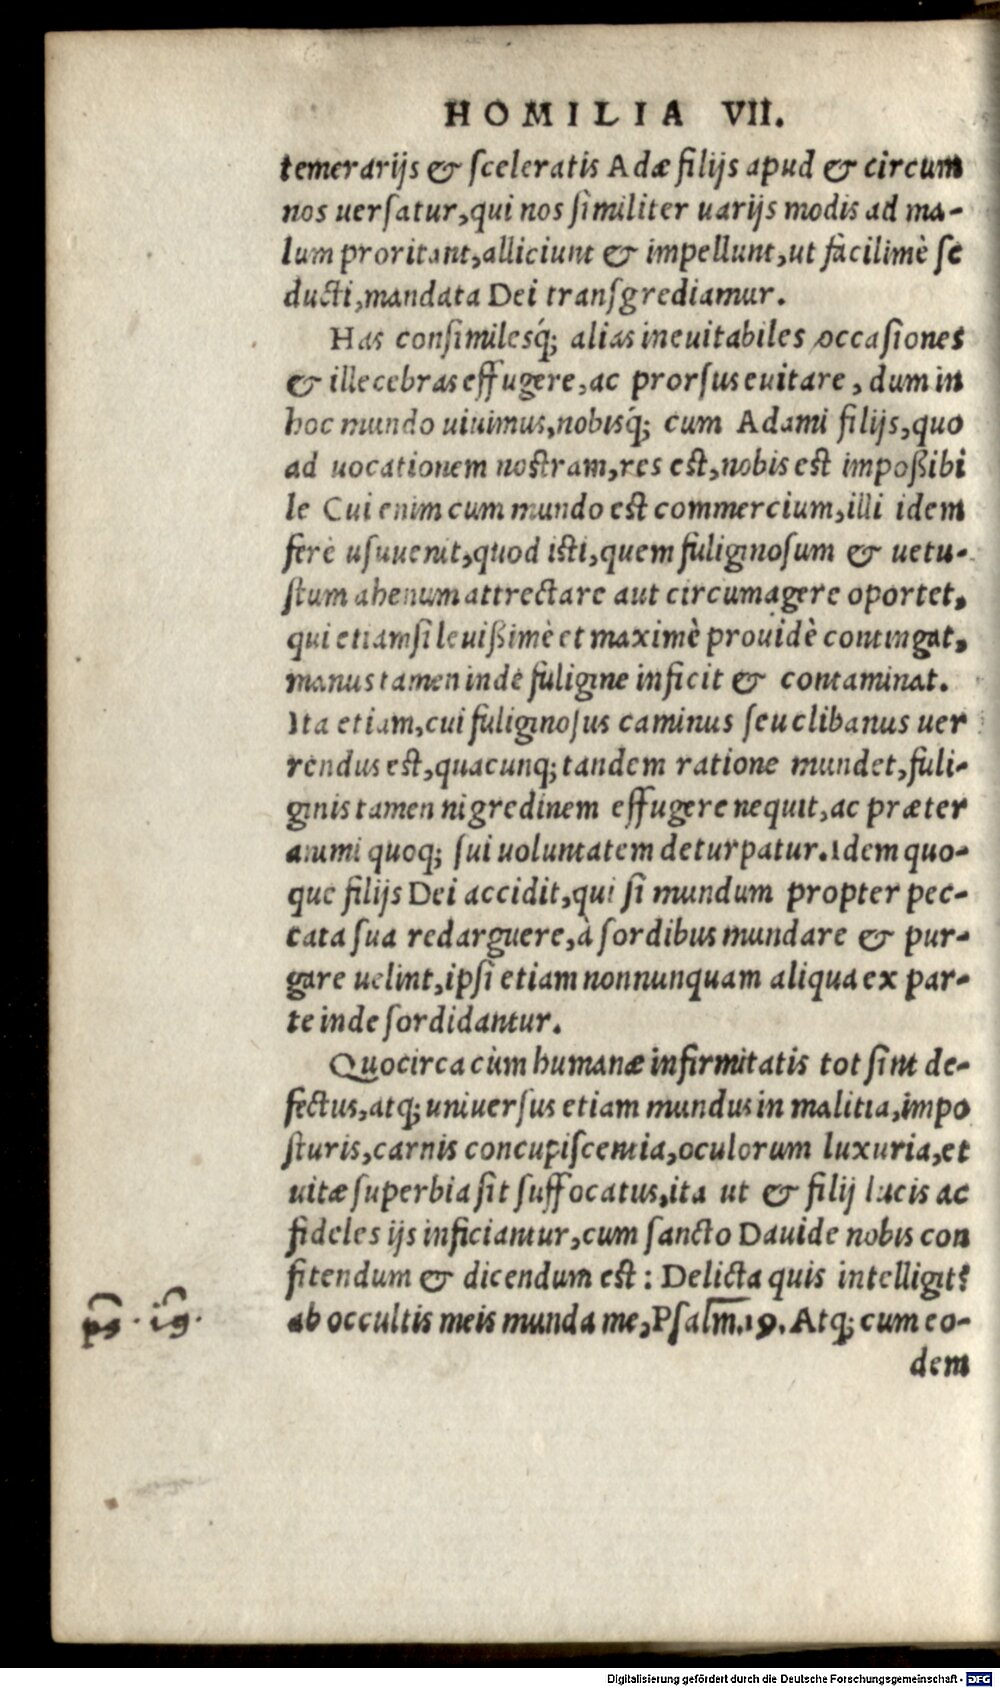 HOMILIA VII.
temerarijs & sceleratis Adæ filijs apud & circum
nos uersatur, qui nos similiter uarijs modis ad ma-
lum proritant, alliciunt & impellunt, ut facilimè se
ducti, mandata Dei transgrediamur.
Has consimilesq́; alias ineuitabiles occasiones
& illecebras effugere, ac prorsus euitare, dum in
hoc mundo uiuimus, nobisq́; cum Adami filijs, quo
ad uocationem nostram, res est, nobis est impoßibi
le Cui enim cum mundo est commercium, illi idem
ferè usuuenit, quod isti, quem fuliginosum & uetu-
stum ahenum attrectare aut circumagere oportet,
qui etiamsi leuißimè et maximè prouidè contingat,
manus tamen inde fuligine inficit & contaminat.
Ita etiam, cui fuliginosus caminus seu clibanus uer
rendus est, quacunq; tandem ratione mundet, fuli-
ginis tamen nigredinem effugere nequit, ac præter
animi quoq; sui uoluntatem deturpatur. Idem quo-
que filijs Dei accidit, qui si mundum propter pec-
cata sua redarguere, à sordibus mundare & pur-
gare uelint, ipsi etiam nonnunquam aliqua ex par-
te inde sordidantur.
Quocirca cùm humanæ infirmitatis tot sint de-
fectus, atq; uniuersus etiam mundus in malitia, impo
sturis, carnis concupiscentia, oculorum luxuria, et
uitæ superbia sit suffocatus, ita ut & filij lucis ac
fideles ijs inficiantur, cum sancto Dauide nobis con
fitendum & dicendum est: Delicta quis intelligit?
ab occultis meis munda me, Psalm. 19. Atq; cum eo-
dem
ps. 19.
Digitalisierung gefördert durch die Deutsche Forschungsgemeinschaft - DFG